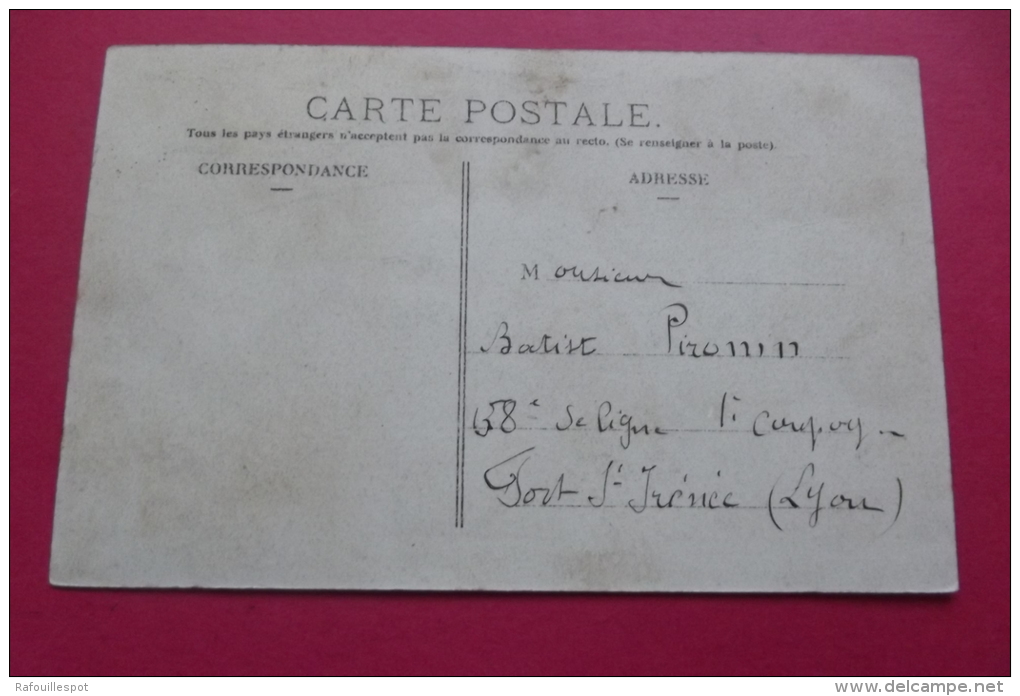 CARTE POSTALE.
Tous les pays étrangers n'acceptent pas la correspondance au recto. (Se renseigner à la poste).
CORRESPONDANCE
ADRESSE
Monsieur
Batist Pironin
158e de ligne 1i
Fort St Irénée (Lyon)
Rafouillespot
delcampe.net